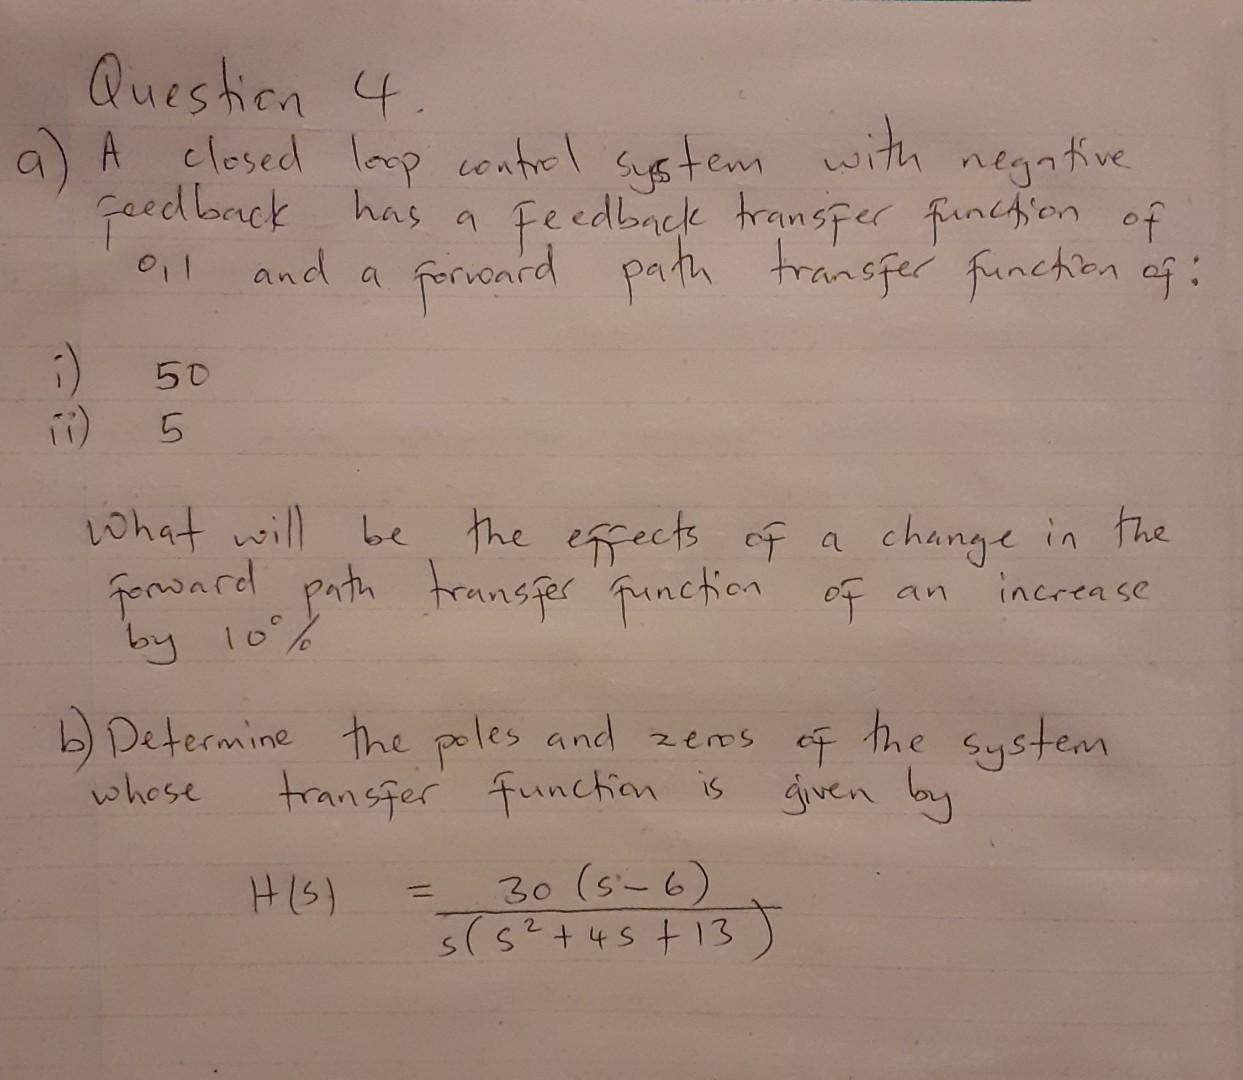 Question 4.
a) A closed loop control system with negative
feedback has a feedback transfer function of
0,1 and a forward path transfer function of:
i) 50
ii) 5
What will be the effects of a change in the
forward path transfer function of an increase
by 10%
b) Determine the poles and zeros of the system
whose transfer function is given by
H(s) = 30 (s-6)
s(s² + 4s + 13)